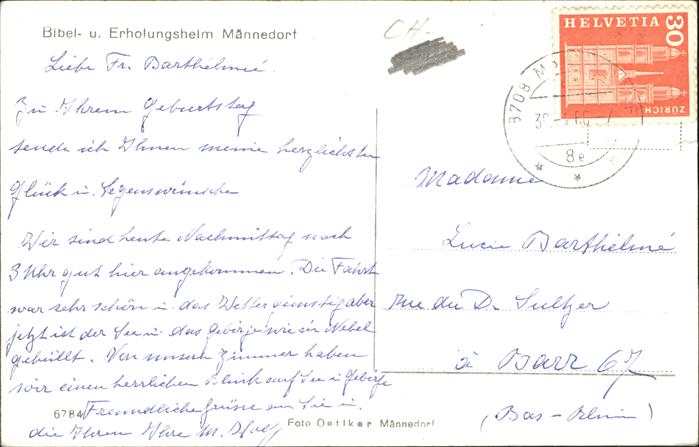 Bibel- u. Erholungsheim Männedorf
CH-
Liebe Fr. Barthélmé.
Zu Ihrem Geburtstag
sende ich Ihnen meine herzlichsten
Glück u. Segenswünsche
Wir sind heute Nachmittag nach
3 Uhr gut hier angekommen. Die Fahrt
war sehr schön u. das Wetter günstig aber
jetzt ist der See u. das Gebirge wie in Nebel
gehüllt. Von unserm Zimmer haben
wir einen herrlichen Blick auf See u. Gebirge
Freundliche Grüsse an Sie u.
die Ihren Ihre M. Wolff
6784
Foto Oetiker Männedorf
HELVETIA
30
ZÜRICH
8708 M
8e
Madame
Lucie Barthélmé
Rue du D. Sultzer
à Barr 67
(Bas-Rhin)